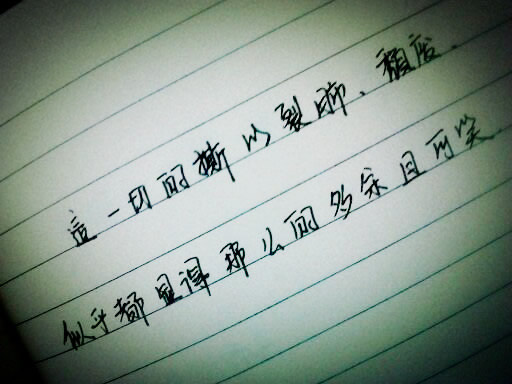 這一切的撕心裂肺、頹废.
似乎都显得那么的多余且可笑